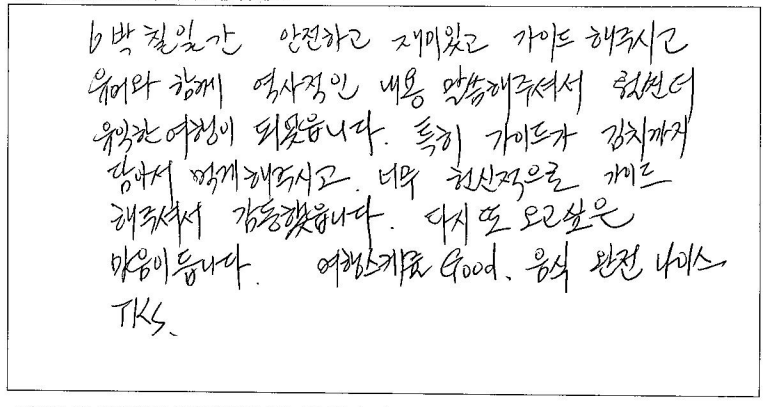 6박 칠일간 안전하고 재미있고 가이드 해주시고
유머와 함께 역사적인 내용 말씀해주셔서 훨씬더
유익한여행이 되었읍니다. 특히 가이드가 김치까지
담아서 먹게해주시고. 너무 헌신적으로 가이드
해주셔서 감동했읍니다. 다시 또 오고싶은
마음이듭니다. 여행스케쥴 Good. 음식 완전 나이스
TKS.